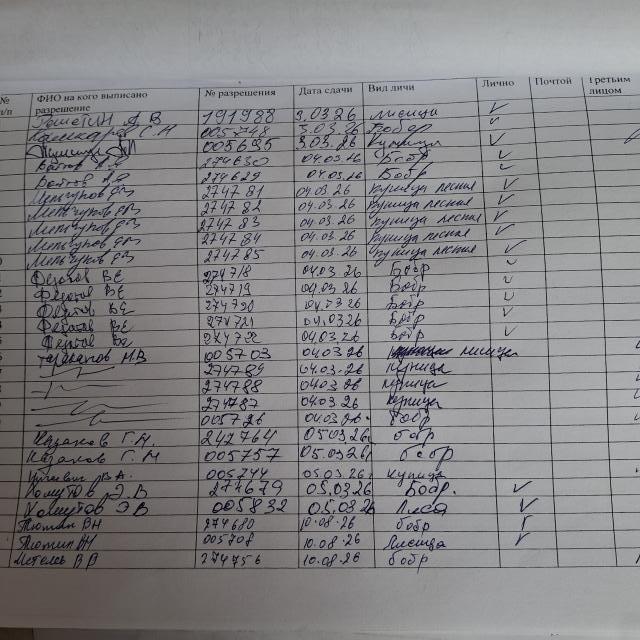 № п/п ФИО на кого выписано разрешение № разрешения Дата сдачи Вид дичи Лично Почтой Третьим лицом
А В 191988 3.03.26 лисица
С.Н 005748 3.03.26 Бобр
005695 3.03.26 куница
274630 04.03.26 Бобр
274629 04.03.26 Бобр
274781 04.03.26 куница лесная
274782 04.03.26 куница лесная
274783 04.03.26 куница лесная
274784 04.03.26 куница лесная
274785 04.03.26 куница лесная
Федотов ВЕ 274718 04.03.26 Бобр
Федотов ВЕ 274719 04.03.26 Бобр
Федотов ВЕ 274720 04.03.26 Бобр
Федотов ВЕ 274721 04.03.26 Бобр
Федотов ВЕ 274722 04.03.26 Бобр
НВ 005703 04.03.26 лисица
274789 04.03.26 куница
274788 04.03.26 куница
274787 04.03.26 куница
005726 04.03.26 бобр
Казаков Г.Н. 242764 05.03.26 бобр
Казаков Г.Н 005757 05.03.26 бобр
В.А. 005744 05.03.26 куница
Хомутов Э.В 274679 05.03.26 Бобр.
Хомутов ЭВ 005832 05.03.26 Лиса
Тютин ВН 274680 10.08.26 бобр
Тютин ВН 005708 10.08.26 Лисица
Метель ВВ 274756 10.08.26 бобр